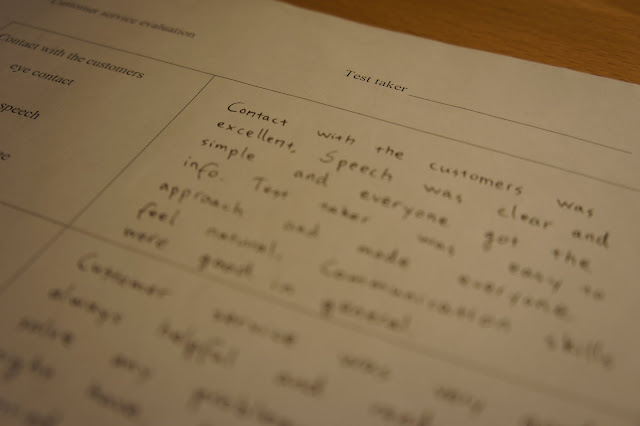 Customer service evaluation
Test taker
Contact with the customers
eye contact
speech
Contact with the customers was
excellent. Speech was clear and
simple and everyone got the
info. Test taker was easy to
approach and made everyone
feel natural. Communication skills
were good in general.
Customer service was very
always helpful and
solve any